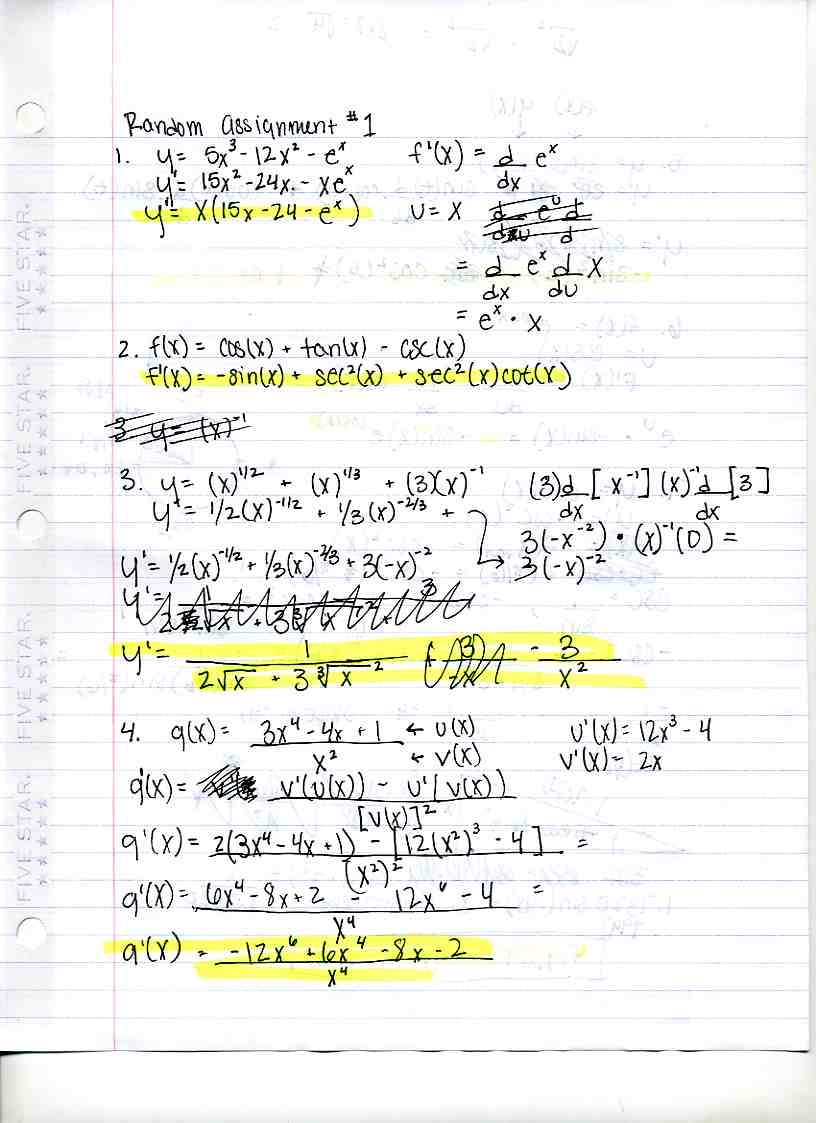 Random Assignment #1
1. y = 5x³ - 12x² - eˣ f'(x) = d/dx eˣ
y' = 15x² - 24x - xeˣ
y' = x(15x - 24 - eˣ) u = x
= d/dx eˣ d/du x
= eˣ · x
2. f(x) = cos(x) + tan(x) - csc(x)
f'(x) = -sin(x) + sec²(x) + sec²(x)cot(x)
3 y = (x)⁻¹
3. y = (x)^1/2 + (x)^1/3 + (3)(x)⁻¹ (3)d/dx [x⁻¹] (x)⁻¹ d/dx [3]
y' = 1/2(x)^-1/2 + 1/3(x)^-2/3 +
3(-x⁻²) · (x)⁻¹(0) =
y' = 1/2(x)^-1/2 + 1/3(x)^-2/3 + 3(-x)⁻² 3(-x)⁻²
y' =
y' = 1/(2√x + 3∛x²) - 3/x²
4. g(x) = (3x⁴ - 4x + 1)/x² ← u(x) ← v(x) u'(x) = 12x³ - 4
v'(x) = 2x
g'(x) = (v'(u(x)) - u'(v(x)))/[v(x)]²
g'(x) = (2(3x⁴ - 4x + 1) - [12(x²)³ - 4])/(x²)² =
g'(x) = (6x⁴ - 8x + 2 - 12x⁶ - 4)/x⁴ =
g'(x) = (-12x⁶ + 6x⁴ - 8x - 2)/x⁴
FIVE STAR.
FIVE STAR.
FIVE STAR.
FIVE STAR.